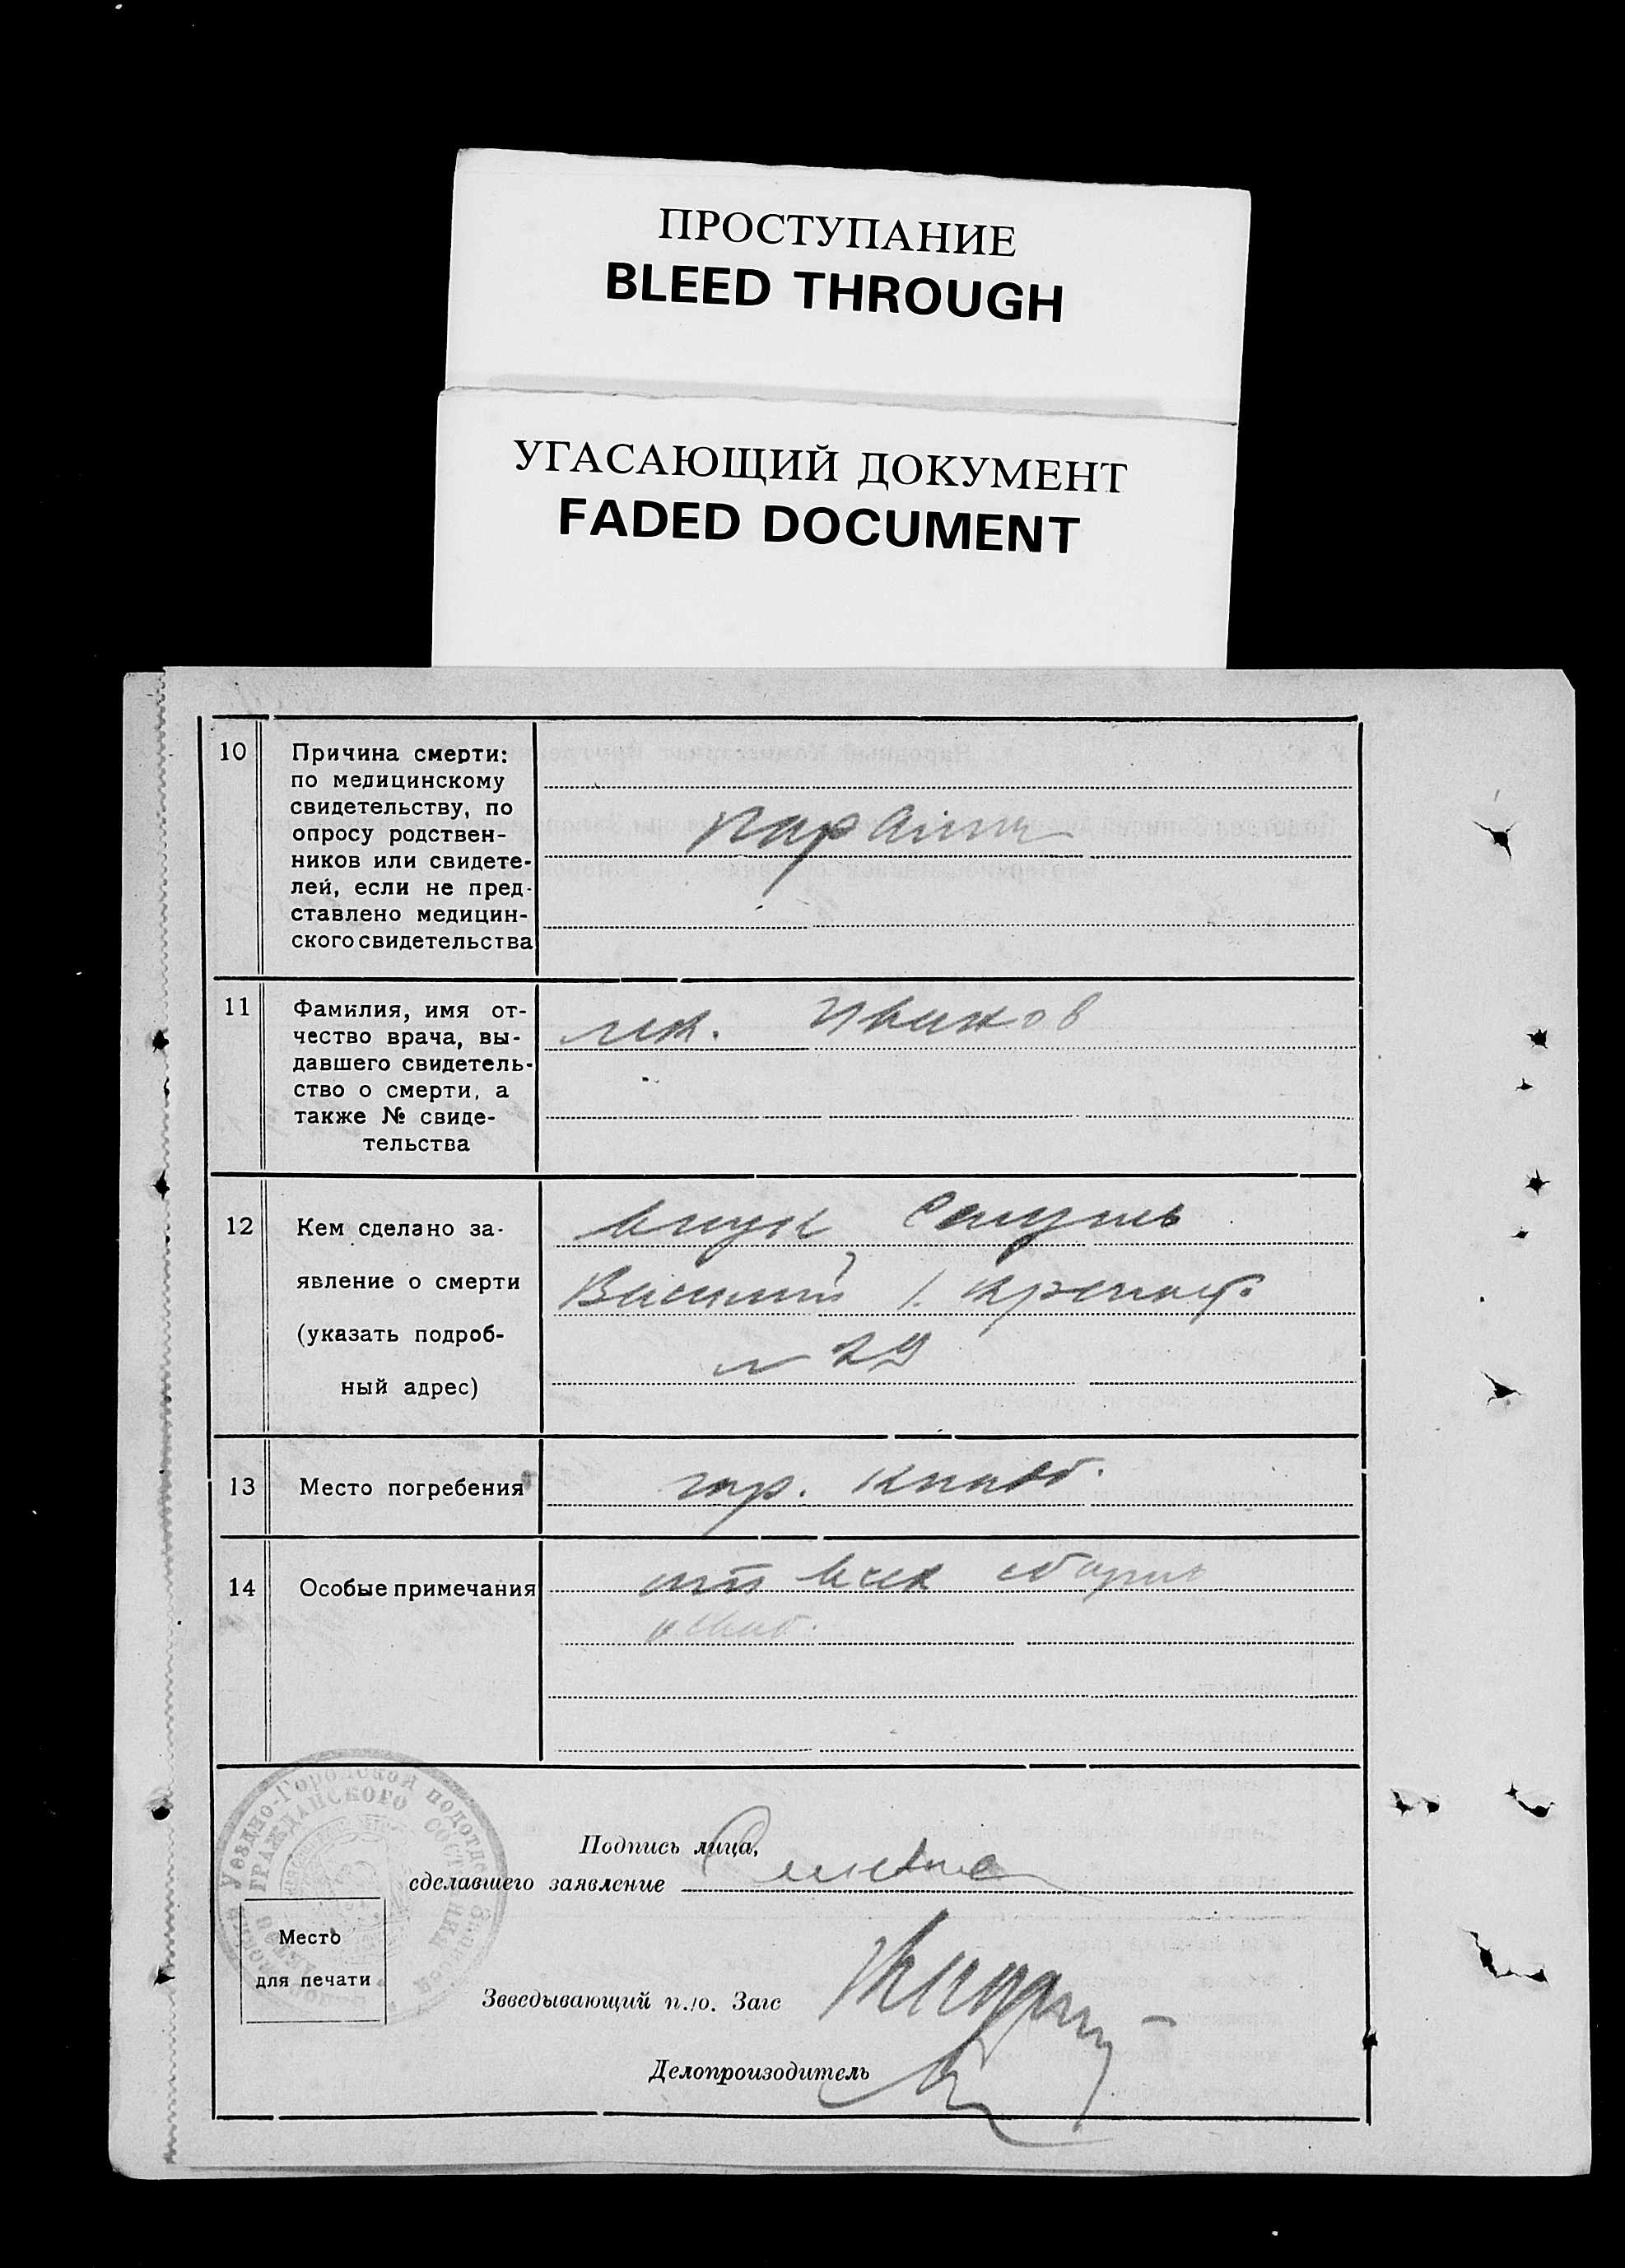 ПРОСТУПАНИЕ
BLEED THROUGH
УГАСАЮЩИЙ ДОКУМЕНТ
FADED DOCUMENT
10 Причина смерти:
по медицинскому
свидетельству, по
опросу родствен-
ников или свидете-
лей, если не пред-
ставлено медицин-
ского свидетельства
11 Фамилия, имя от-
чество врача, вы-
давшего свидетель-
ство о смерти, а
также № свиде-
тельства
лек. Иванов
12 Кем сделано за-
явление о смерти
(указать подроб-
ный адрес)
внук
Василий 1.
№ 29
13 Место погребения
гор. кладб.
14 Особые примечания
от всех
Уездно-Городской подотдел Записей
ГРАЖДАНСКОГО СОСТОЯНИЯ
Подпись лица,
сделавшего заявление
Место
для печати
Звведывающий п./о. Загс
Делопроизодитель